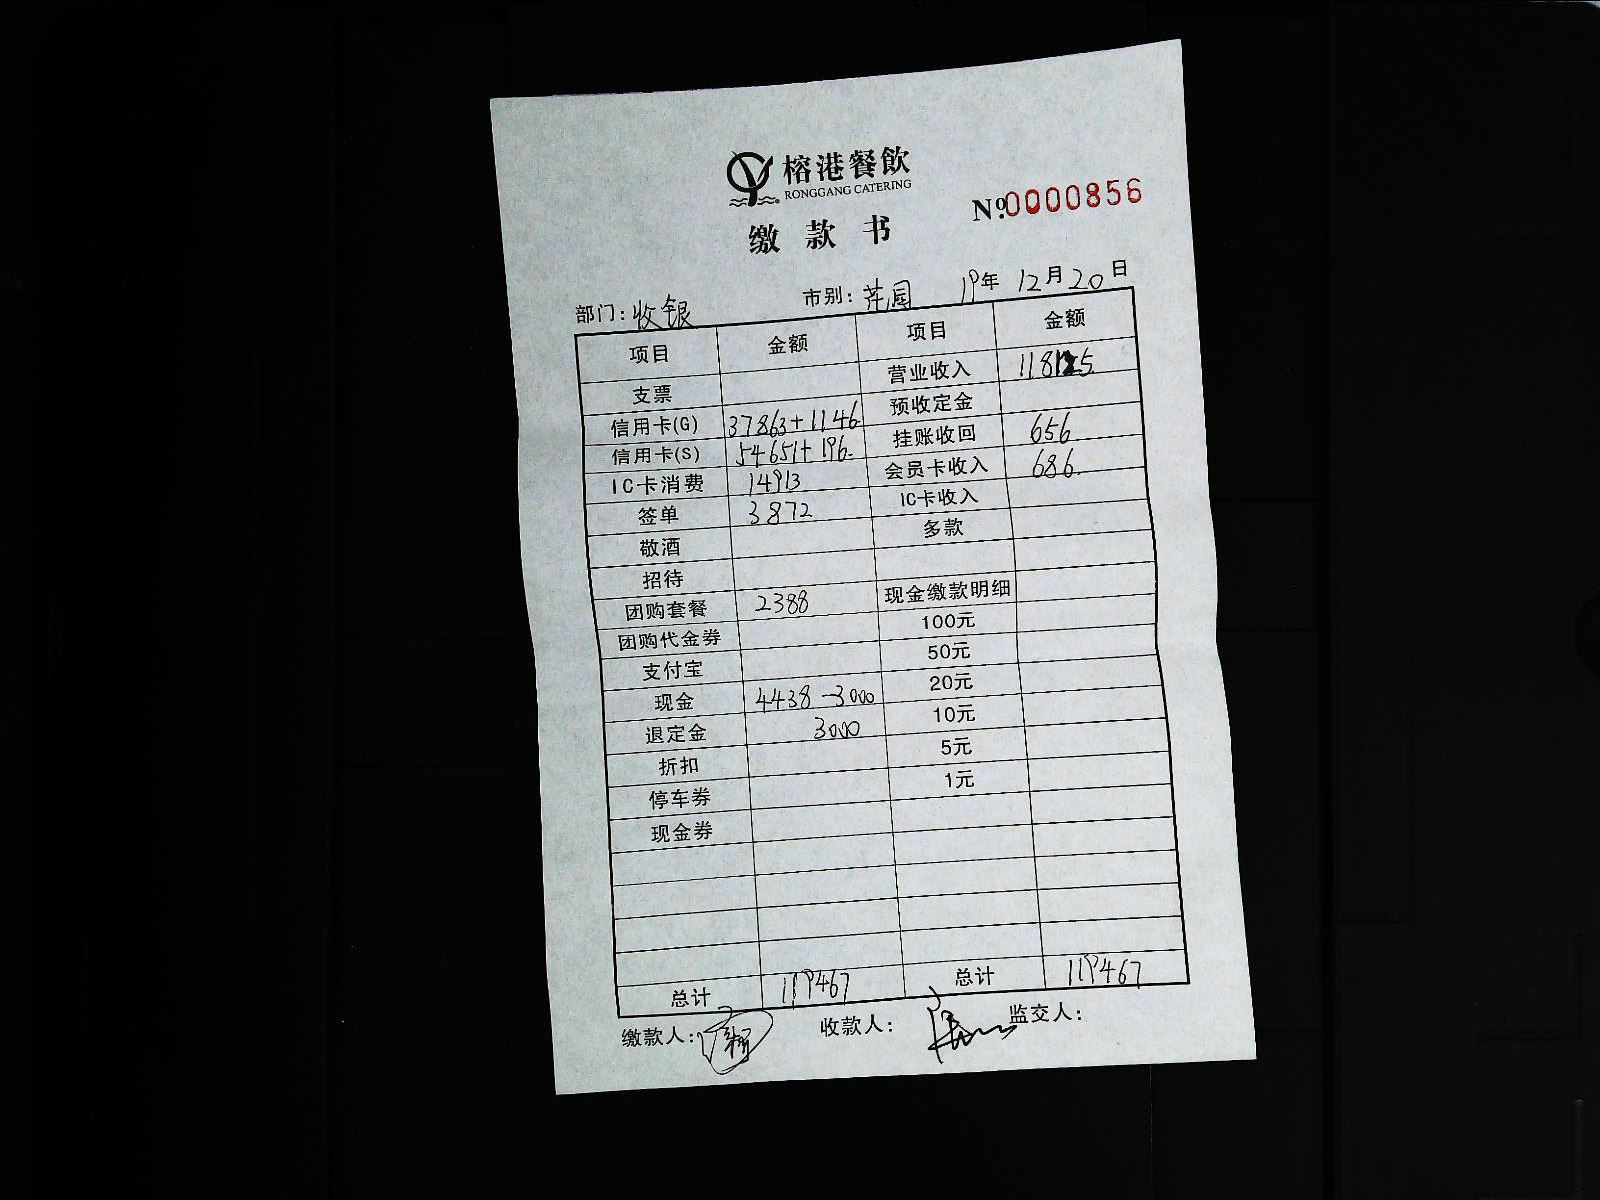 榕港餐飲
RONGGANG CATERING
缴款书
Nº.0000856
部门: 收银 市别: 19年 12月20日
项目 金额 项目 金额
支票 营业收入 118125
信用卡(G) 37863+1146 预收定金
信用卡(S) 54651+196 挂账收回 656
IC卡消费 14913 会员卡收入 686
签单 3872 IC卡收入
敬酒 多款
招待
团购套餐 2388 现金缴款明细
团购代金券 100元
支付宝 50元
现金 4438-3000 20元
退定金 3000 10元
折扣 5元
停车券 1元
现金券
总计 119467 总计 119467
缴款人: 收款人: 监交人: